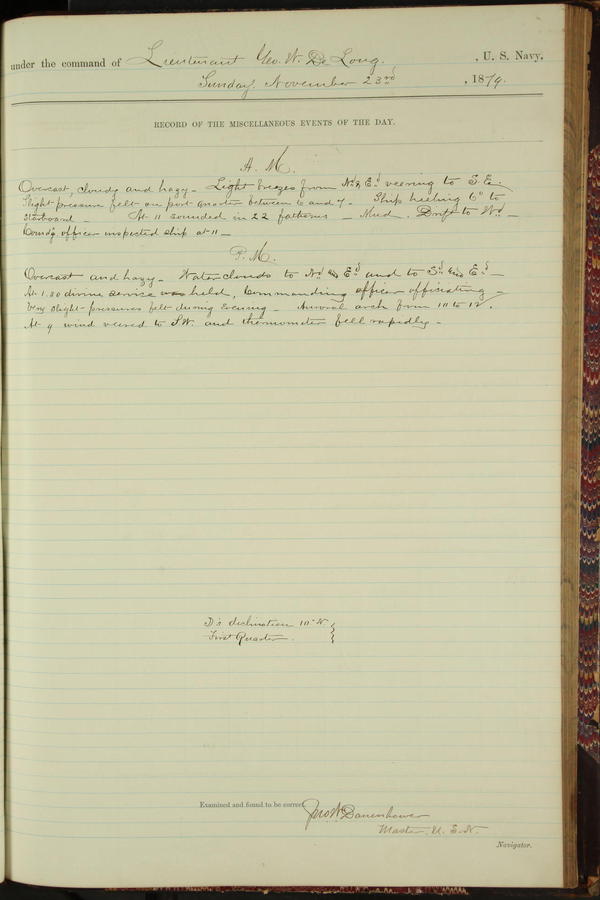 under the command of Lieutenant Geo. W. De Long, , U. S. Navy,
Sunday, November 23rd , 1879.
RECORD OF THE MISCELLANEOUS EVENTS OF THE DAY.
A. M.
Overcast, cloudy and hazy - Light breezes from Nd & Ed veering to S. E.
Slight pressure felt on port quarter between 6 and 7 - Ship heeling 6° to
starboard - At 11 sounded in 22 fathoms - Mud. Drift to Wd -
Comdg officer inspected ship at 11 -
P. M.
Overcast and hazy - Water clouds to Nd & Ed and to Sd and Ed -
At 1.30 divine service was held, Commanding officer officiating -
Very slight pressures felt during evening - Auroral arch from 10 to 12.
At 9 wind veered to SW. and thermometer fell rapidly -
D's declination 10° N.
First Quarter.
Examined and found to be correct
Jno. W. Danenhower
Master, U. S. N.
Navigator.